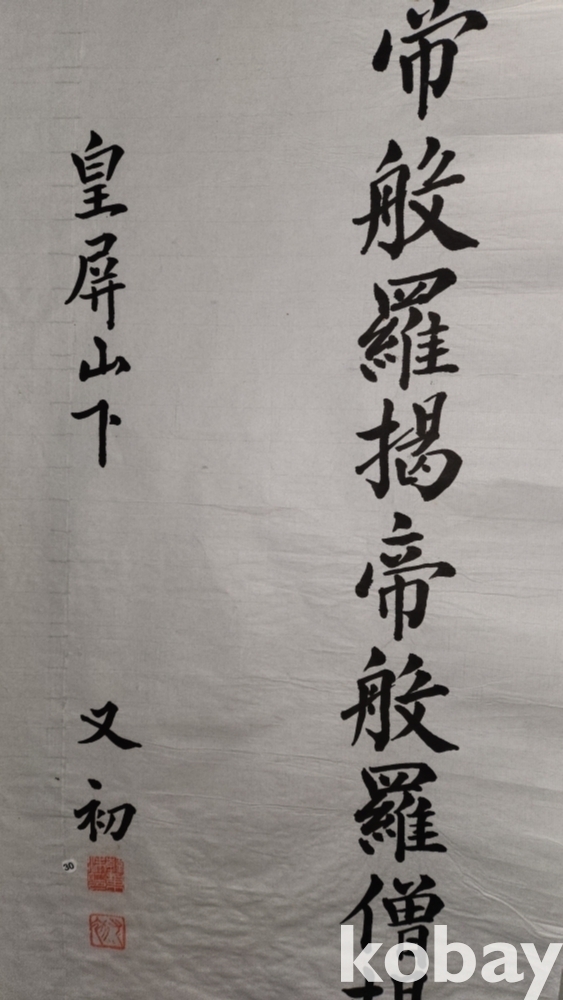 帝般羅揭帝般羅僧
皇屏山下
又初
30
kobay